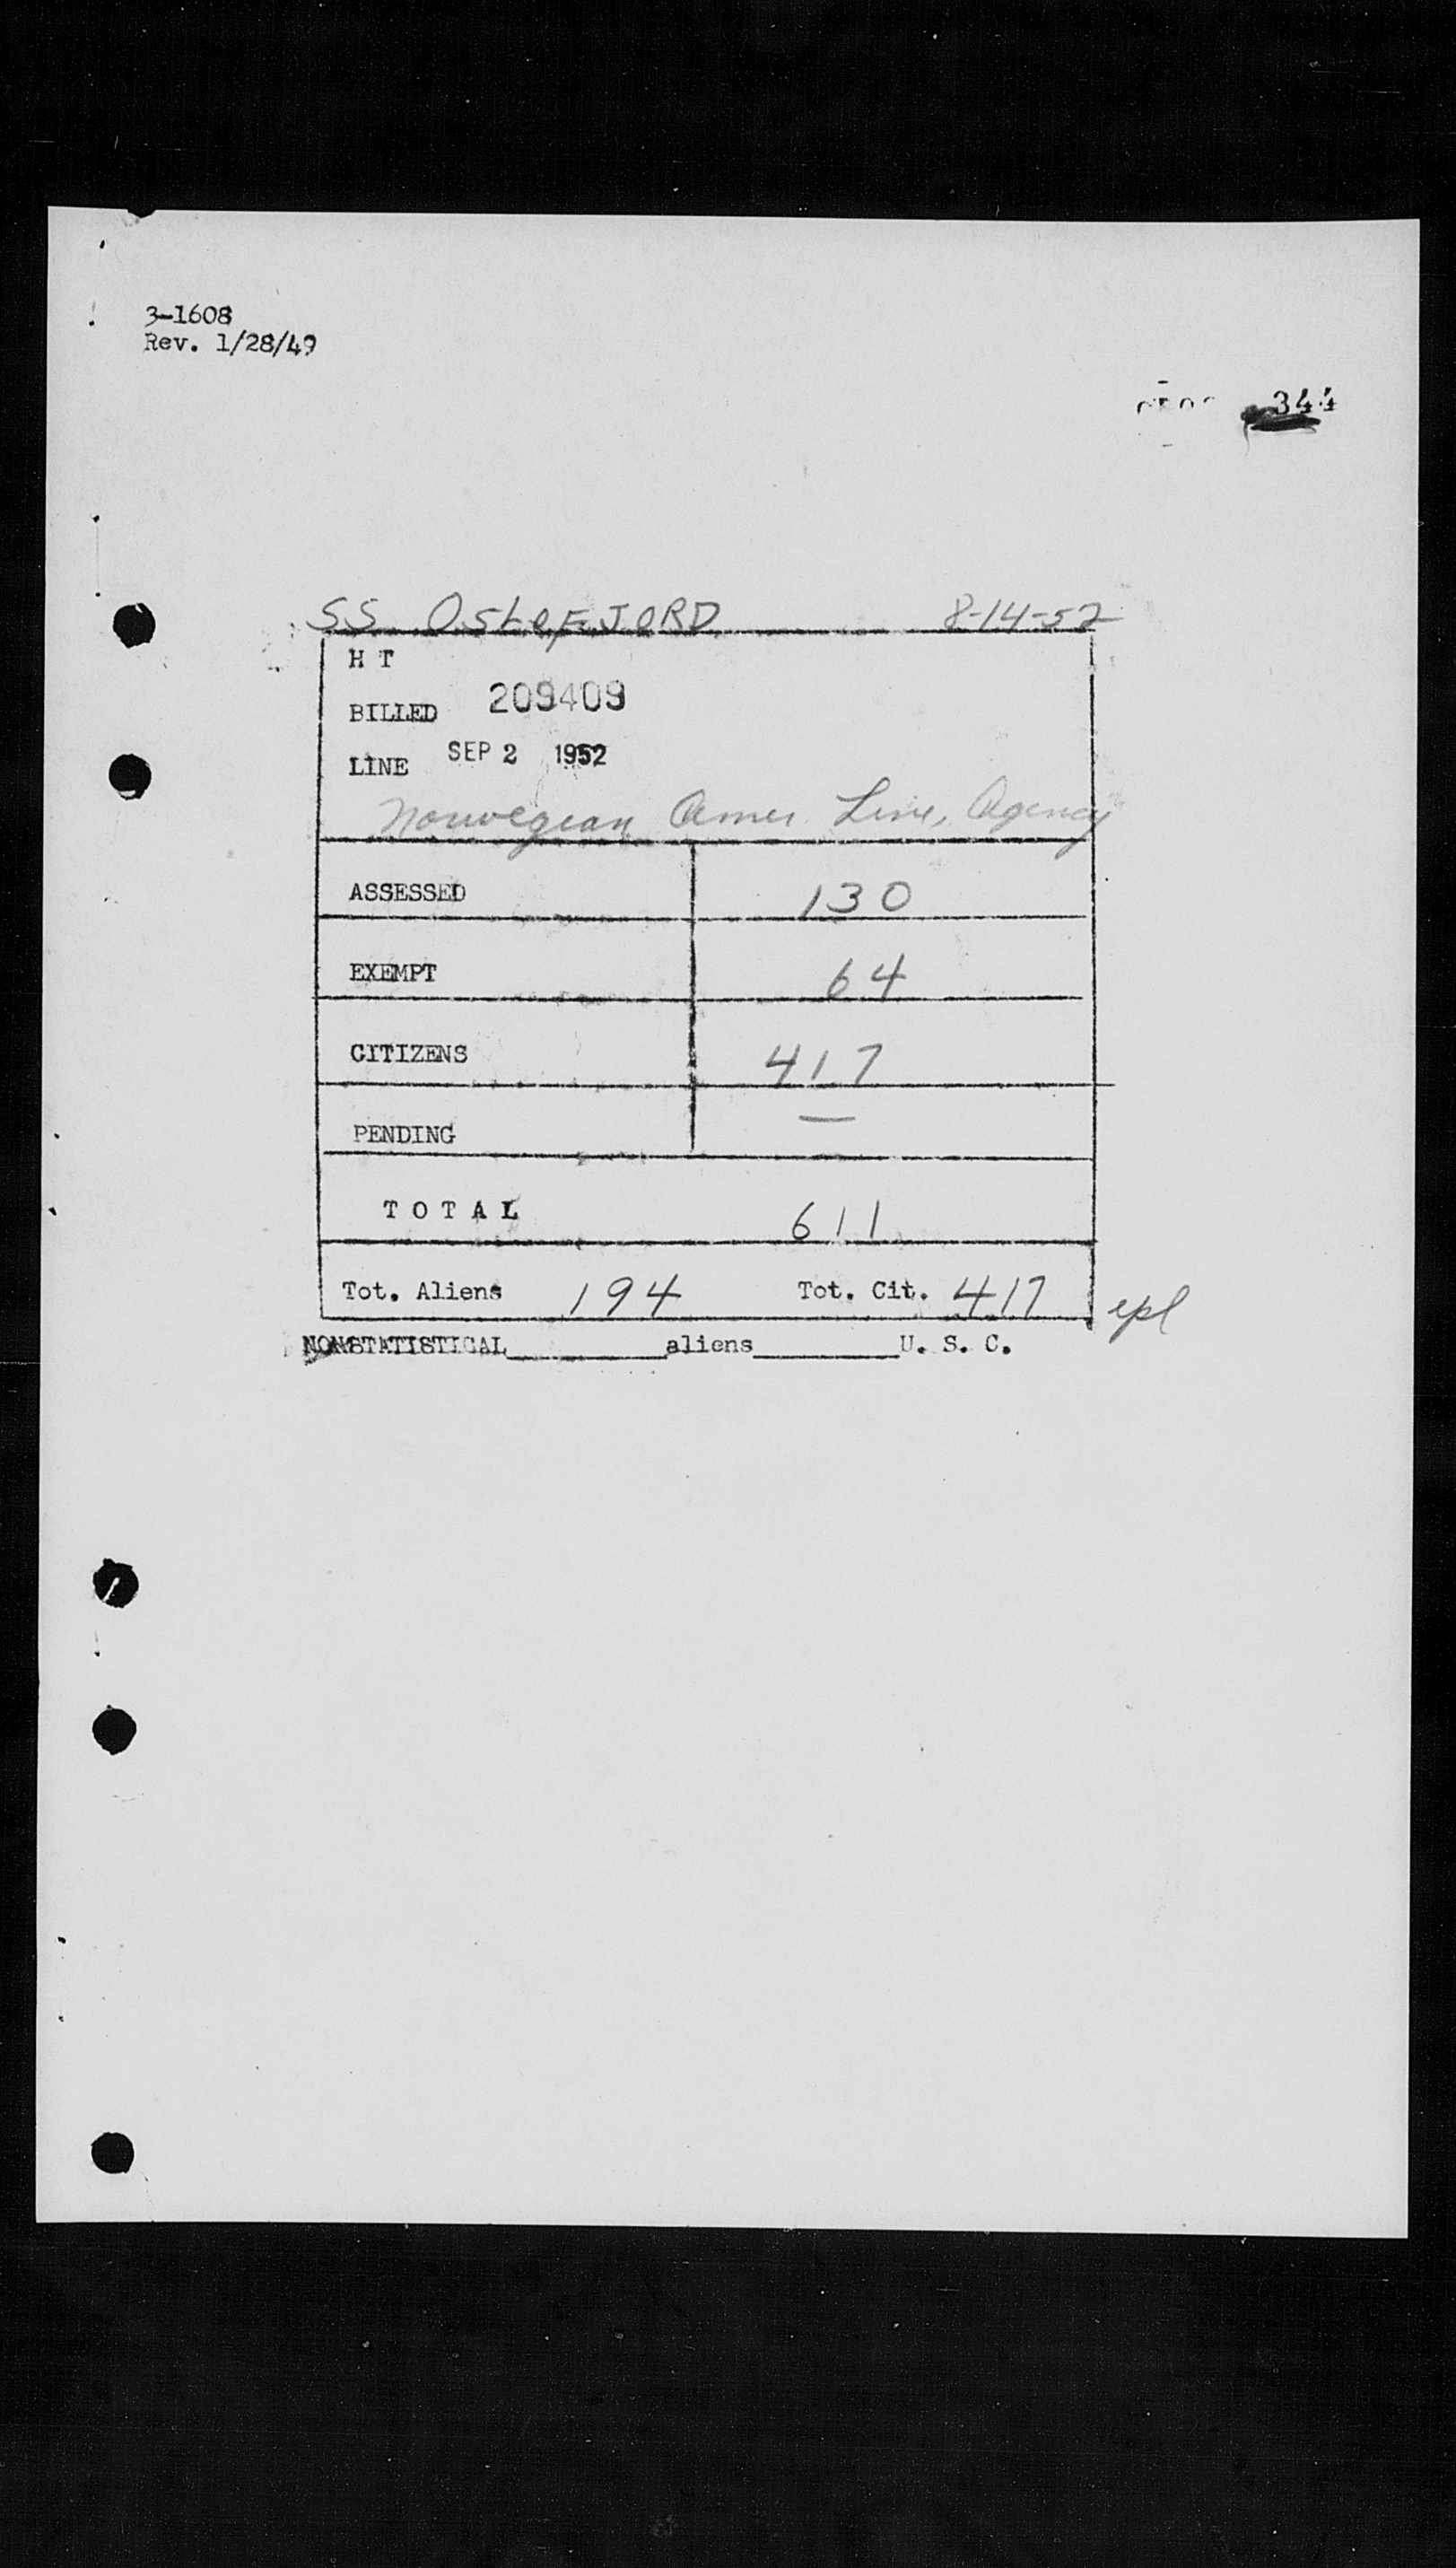 3-1608
Rev. 1/28/49
344
SS OSLOFJORD 8-14-52
H T
BILLED 209409
LINE SEP 2 1952
Norwegian Amer. Line, Agency
ASSESSED 130
EXEMPT 64
CITIZENS 417
PENDING —
TOTAL 611
Tot. Aliens 194 Tot. Cit. 417 epl
NONSTATISTICAL________aliens________U. S. C.